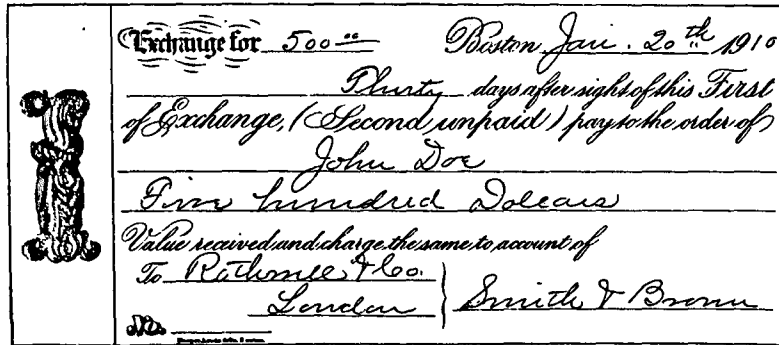 Exchange for 500.00 Boston Jan. 20th 1910
Thirty days after sight of this First
of Exchange, (Second unpaid) pay to the order of
John Doe
Five hundred Dollars
Value received and charge the same to account of
To & Co.
London Smith & Brown
No.